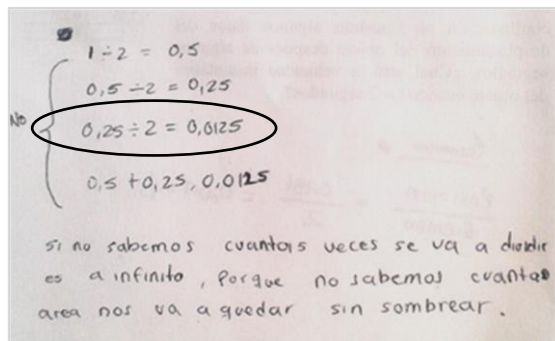 1 ÷ 2 = 0,5
0,5 ÷ 2 = 0,25
No
0,25 ÷ 2 = 0,0125
0,5 + 0,25, 0,0125
si no sabemos cuantas veces se va a dividir
es a infinito, Porque no sabemos cuantas
area nos va a quedar sin sombrear.